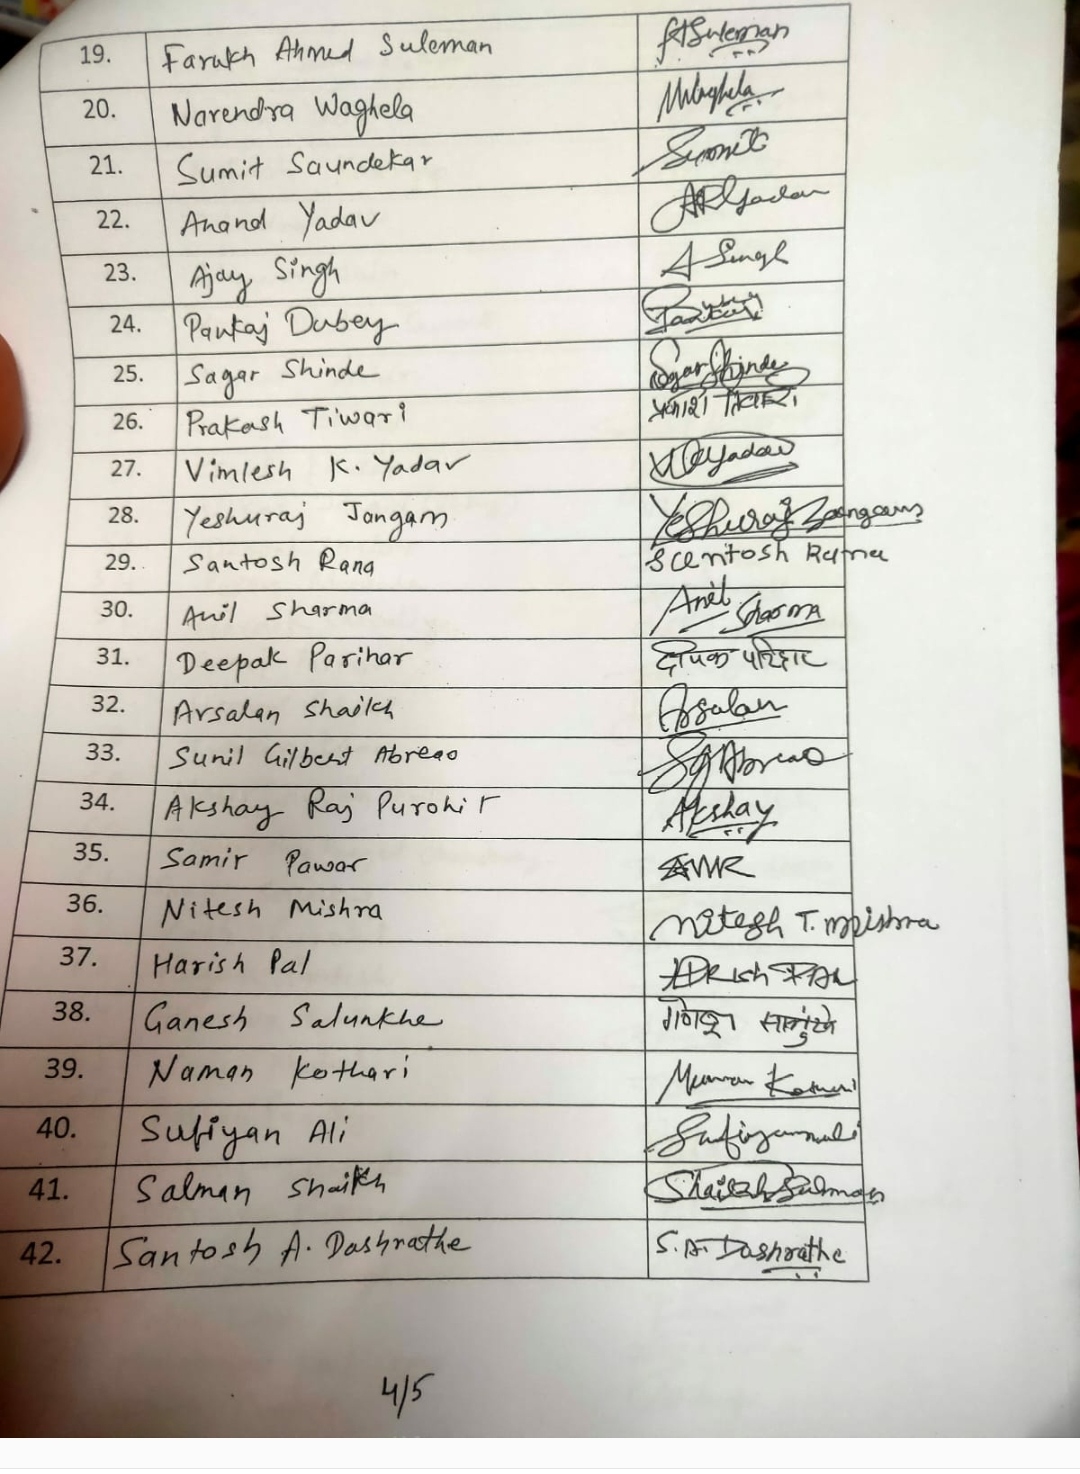 19. Farukh Ahmed Suleman FASuleman
20. Narendra Waghela NWaghela
21. Sumit Saundekar Sumit
22. Anand Yadav ARYadav
23. Ajay Singh A Singh
24. Pankaj Dubey
25. Sagar Shinde Sagar Shinde
26. Prakash Tiwari प्रकाश तिवारी
27. Vimlesh K. Yadav Yadav
28. Yeshuraj Jangam Yeshuraj Jangam
29. Santosh Rana Santosh Rana
30. Anil Sharma Anil Sharma
31. Deepak Parihar दीपक परिहार
32. Arsalan Shaikh Arsalan
33. Sunil Gilbert Abreao SGAbreao
34. Akshay Raj Purohit Akshay
35. Samir Pawar
36. Nitesh Mishra Nitesh T. Mishra
37. Harish Pal HARish PAL
38. Ganesh Salunkhe गणेश साळुंखे
39. Naman Kothari Naman Kothari
40. Sufiyan Ali Sufiyanali
41. Salman Shaikh Shaikh Salman
42. Santosh A. Dashrathe S.A. Dashrathe
4/5